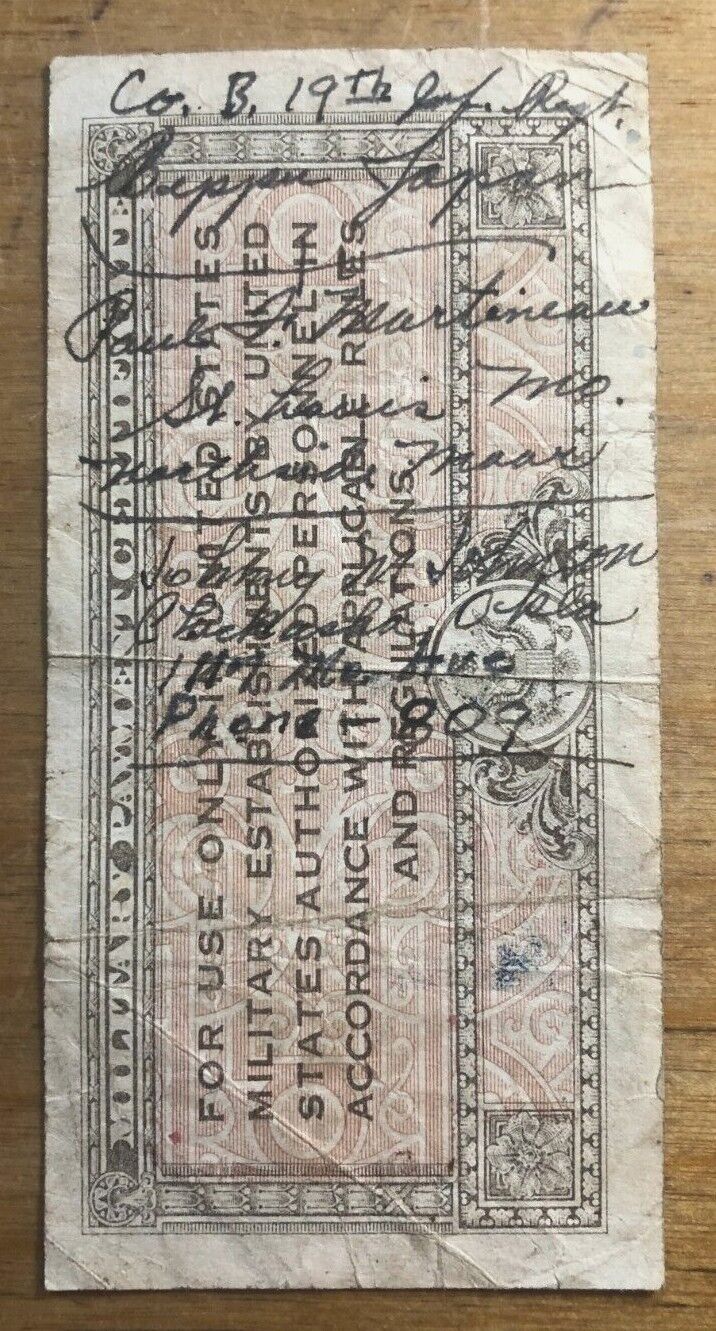 Co. B. 19th Inf. Regt.
Beppu Japan
Paul F. Martineau
St. Louis Mo.
Johnny W. Johnson
Okla
Ave
Phone 1809
MILITARY PAYMENT CERTIFICATE
FOR USE ONLY IN UNITED STATES
MILITARY ESTABLISHMENTS BY UNITED
STATES AUTHORIZED PERSONNEL IN
ACCORDANCE WITH APPLICABLE RULES
AND REGULATIONS